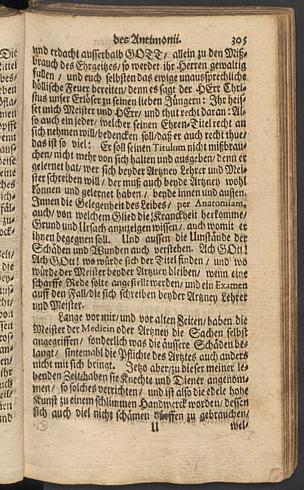 des Antimonii. 305
und erdacht ausserhalb GOTT / allein zu den Miß-
brauch des Ehrgeitzes / so werdet ihr Herren gewaltig
fallen / und euch selbsten das ewige unaussprechliche
höllische Feuer bereiten / denn es sagt der HErr Chri-
stus unser Erlöser zu seinen lieben Jüngern: Ihr heis-
set mich Meister und HErr / und thut recht daran: Al-
so auch ein jeder / welcher seinen Ehren-Titel recht an
sich nehmen will / bedencken soll / daß er auch recht thue /
das ist so viel: Er soll seinen Titulum nicht mißbrau-
chen / nicht mehr von sich halten und ausgeben / denn er
gelernet hat / wer sich beyder Artzney Lehrer und Mei-
ster schreiben will / der muß auch beyde Artzney wohl
können und gelernet haben / beyde innen und aussen.
Innen die Gelegenheit des Leibes / per Anatomiam,
auch / von welchem Glied die Kranckheit herkomme /
Grund und Ursach anzuzeigen wissen / auch womit er
ihnen begegnen soll. Und aussen die Umstände der
Schäden und Wunden auch verstehen. Ach GOtt!
Ach GOtt! wo würde sich der Titel finden / und wo
würde der Meister beyder Artzney bleiben / wenn eine
scharffe Rede solte angestellt werden / und ein Examen
auff den Fall / die sich schreiben beyder Artzney Lehrer
und Meister.
Lange vor mir / und vor alten Zeiten / haben die
Meister der Medicin oder Artzney die Sachen selbst
angegriffen / sonderlich was die äussere Schäden be-
langt / sintemahl die Pflichte des Artztes auch anders
nicht mit sich bringt. Jetzo aber / zu dieser meiner le-
benden Zeit / haben sie Knechte und Diener angenom-
men / so solches verrichten / und ist also die edele hohe
Kunst zu einem schlimmen Handwerck worden / dessen
sich auch viel nicht schämen dürffen zu gebrauchen /
U wel-